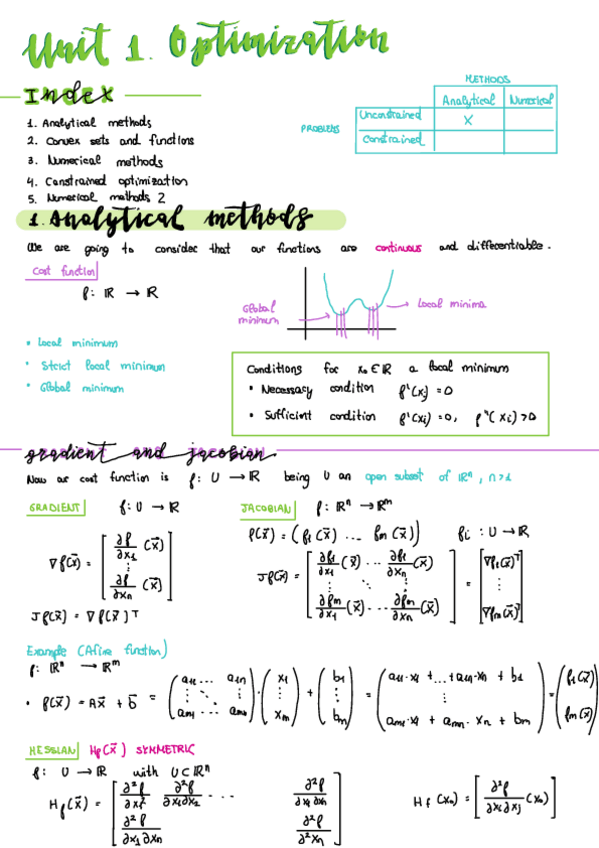 Unit 1. Optimization
Index
METHODS
Analytical Numerical
PROBLEMS
Unconstrained X
Constrained
1. Analytical methods
2. Convex sets and functions
3. Numerical methods
4. Constrained optimization
5. Numerical methods 2
1. Analytical methods
We are going to consider that our functions are continuous and differentiable.
Cost function
f: ℝ → ℝ
Global minimum
Local minima
• Local minimum
• Strict local minimum
• Global minimum
Conditions for x₀ ∈ ℝ a local minimum
• Necessary condition f'(x₀) = 0
• Sufficient condition f'(xᵢ) = 0, f''(xᵢ) > 0
gradient and jacobian.
Now our cost function is f: U → ℝ being U an open subset of ℝⁿ, n>1
GRADIENT f: U → ℝ
∇f(x⃗) = [∂f/∂x₁ (x⃗) ⋮ ∂f/∂xₙ (x⃗)]
Jf(x⃗) = ∇f(x⃗)ᵀ
JACOBIAN f: ℝⁿ → ℝᵐ
f(x⃗) = (f₁(x⃗) ... fₘ(x⃗)) fᵢ : U → ℝ
Jf(x⃗) = [∂f₁/∂x₁ (x⃗) ... ∂f₁/∂xₙ (x⃗) ⋮ ⋱ ⋮ ∂fₘ/∂x₁ (x⃗) ... ∂fₘ/∂xₙ (x⃗)] = [∇f₁(x⃗)ᵀ ⋮ ∇fₘ(x⃗)ᵀ]
Example (Afine function)
f: ℝⁿ → ℝᵐ
• f(x⃗) = Ax⃗ + b⃗ = (a₁₁ ... a₁ₙ ⋮ ⋱ ⋮ aₘ₁ ... aₘₙ) · (x₁ ⋮ xₘ) + (b₁ ⋮ bₘ) = (a₁₁·x₁ + ... + a₁ₙ·xₙ + b₁ ⋮ aₘ₁·x₁ + aₘₙ·xₙ + bₘ) = (f₁(x⃗) fₘ(x⃗))
HESSIAN Hf(x⃗) SYMMETRIC
f: U → ℝ with U ⊂ ℝⁿ
Hf(x⃗) = [∂²f/∂x₁² ∂²f/∂x₁∂x₂ ... ∂²f/∂x₁∂xₙ ∂²f/∂x₁∂xₙ ∂²f/∂²xₙ]
Hf(x₀) = [∂²f/∂xᵢ∂xⱼ (x₀)]